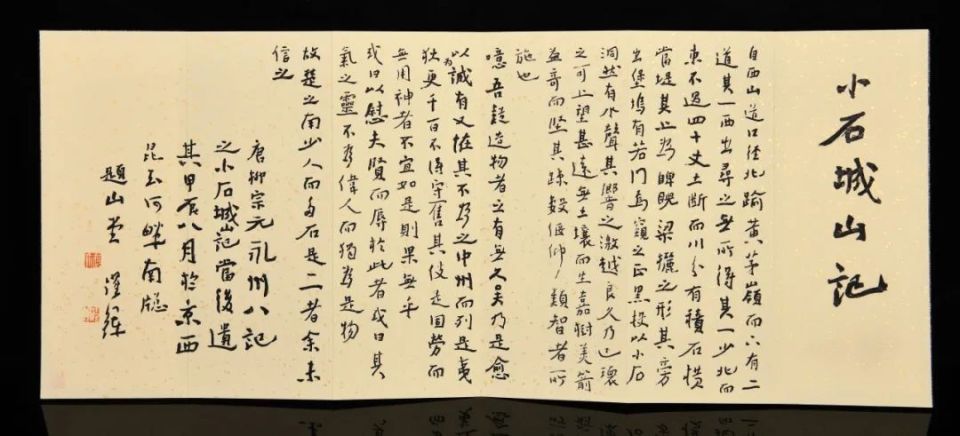 小石城山記
自西山道口徑北踰黄茅嶺而下有二
道其一西出尋之無所得其一少北而
東不過四十丈土斷而川分有積石横
當堤其上为睥睨梁欐之形其旁
出堡塢有若門焉窺之正黑投以小石
洞然有水聲其響之激越良久乃已環
之可上望甚遠無土壤而生嘉樹美箭
益奇而堅其疎數偃仰類智者所
施也
噫吾疑造物者之有無久矣乃是愈
以为誠有又怪其不为之中州而列是夷
狄更千百不得守售其伎是固勞而
無用神者不宜如是則果無乎
或曰以慰夫賢而辱於此者或曰其
氣之靈不为偉人而獨为是物
故楚之南少人而多石是二者余未
信之
唐柳宗元永州八記
之小石城山記當後遺
其甲辰八月於京西
昆玉河畔南牕
題山堂